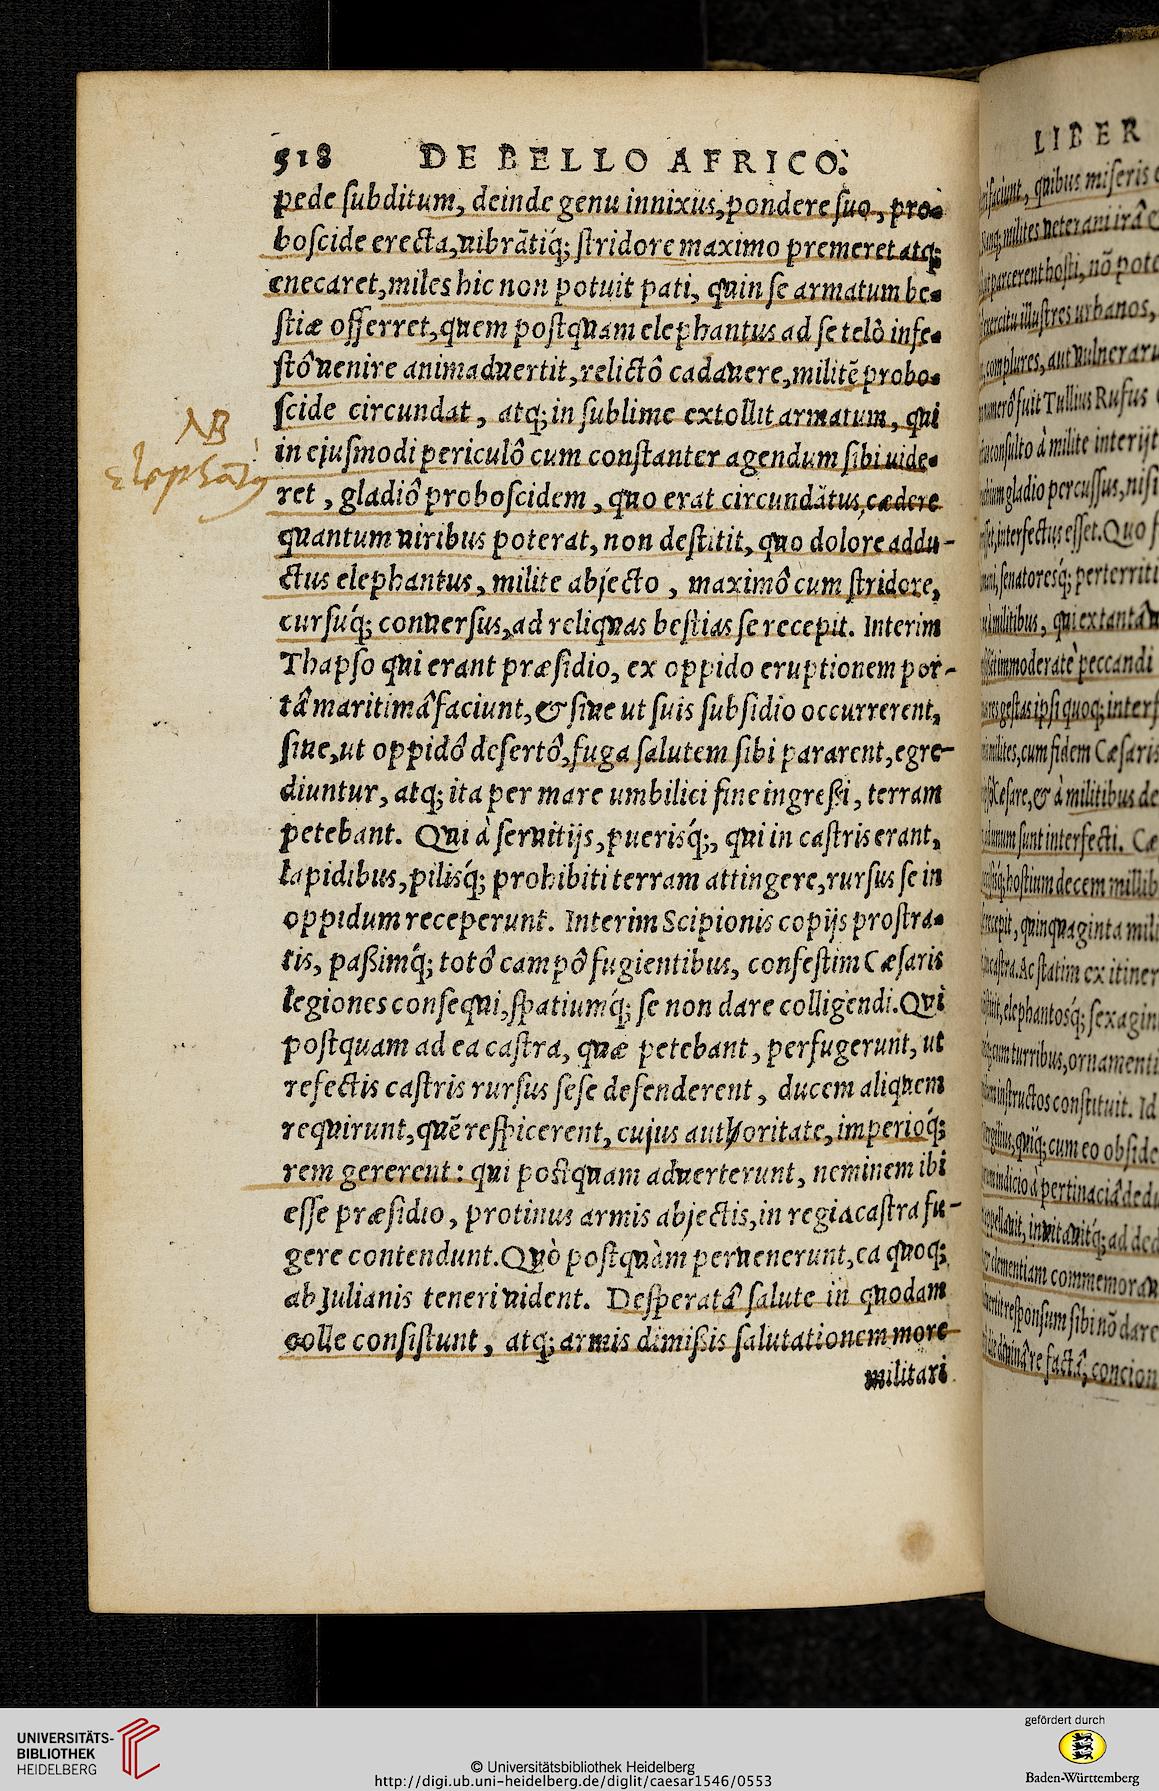 518 DE BELLO AFRICO.
pede ſubditum, deinde genu innixus, pondere ſuo, pro-
boſcide erecta, uibrãtiq́; ſtridore maximo premeret atq;
enecaret, miles hic non potuit pati, quin ſe armatum be-
ſtiæ offerret, quem poſtquam elephantus ad ſe telô infe-
ſtô uenire animaduertit, relictô cadauere, militẽ probo-
ſcide circundat, atq; in ſublime extollit armatum, qui
in ejuſmodi periculô cum conſtanter agendum ſibi uide-
ret, gladiô proboſcidem, quo erat circundătus, cædere
quantum uiribus poterat, non deſtitit, quo dolore addu-
ctus elephantus, milite abjecto, maximô cum ſtridore,
curſúq; conuerſus, ad reliquas beſtias ſe recepit. Interim
Thapſo qui erant præſidio, ex oppido eruptionem por-
tâ maritimâ faciunt, & ſiue ut ſuis ſubſidio occurrerent,
ſiue, ut oppidô deſertô, fuga ſalutem ſibi pararent, egre-
diuntur, atq; ita per mare umbilici fine ingreßi, terram
petebant. Qui à ſeruitijs, puerisq́;, qui in caſtris erant,
lapidibus, pilisq́; prohibiti terram attingere, rurſus ſe in
oppidum receperunt. Interim Scipionis copijs proſtra-
tis, paßimq́; totô campô fugientibus, confeſtim Cæſaris
legiones conſequi, ſpatiumq́; ſe non dare colligendi. Qui
poſtquam ad ea caſtra, quæ petebant, perfugerunt, ut
refectis caſtris rurſus ſeſe defenderent, ducem aliquem
requirunt, quẽ reſpicerent, cujus authoritate, imperioq́;
rem gererent: qui poſtquam aduerterunt, neminem ibi
eſſe præſidio, protinus armis abjectis, in regia caſtra fu-
gere contendunt. Quò poſtquàm peruenerunt, ea quoq;
ab Julianis teneri uident. Deſperatâ ſalute in quodam
colle conſiſtunt, atq; armis dimißis ſalutationem more
militari
NB
Elephãtus
LIBER
faciunt, quibus miſeris
milites ueterani irâ
parcerent hoſti, nõ
illuſtres urbanos,
complures, aut
fuit Tullius Rufus
conſulto à milite interijt
gladio percuſſus, niſi
interfectus eſſet. Quo
ſenatoresq́; perterriti
militibus, qui ex tantâ
immoderatè peccandi
geſtas ipſi quoq; interf
milites, cum fidem Cæſaris
Cæſare, & à militibus de
ſunt interfecti. Cæ
hoſtium decem millib
quinquaginta mili
caſtra. Ac ſtatim ex itiner
elephantosq́; ſexagin
cum turribus, ornamenti
inſtructos conſtituit. Id
cum eo obſide
indicio à pertinaciâ dedu
inuitauitq́; ad ded
clementiam commemorau
reſponſum ſibi nõ dare
re factâ, concion
UNIVERSITÄTS-
BIBLIOTHEK
HEIDELBERG
© Universitätsbibliothek Heidelberg
http://digi.ub.uni-heidelberg.de/diglit/caesar1546/0553
gefördert durch
Baden-Württemberg